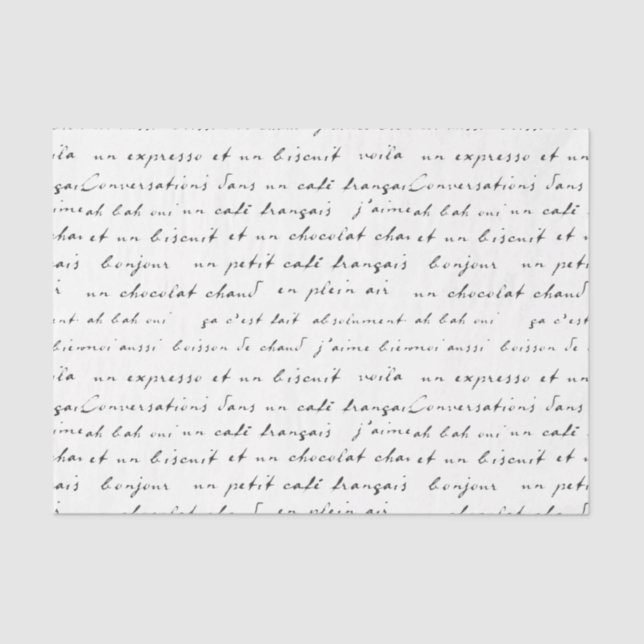 ila un expresso et un biscuit voila un expresso et un
çaiConversations dans un café françaiConversations dans
imeah bah oui un café français j'aimeah bah oui un café
chaet un biscuit et un chocolat chaet un biscuit et un
ais bonjour un petit café français bonjour un peti
un chocolat chaud en plein air un chocolat chaud
nt. ah bah oui ça c'est fait absolument. ah bah oui ça c'est
biènmoi aussi boisson de chaud j'aime biènmoi aussi boisson de
ila un expresso et un biscuit voila un expresso et un
çaiConversations dans un café françaiConversations dans
imeah bah oui un café français j'aimeah bah oui un café
chaet un biscuit et un chocolat chaet un biscuit et un
ais bonjour un petit café français bonjour un peti
en plein air